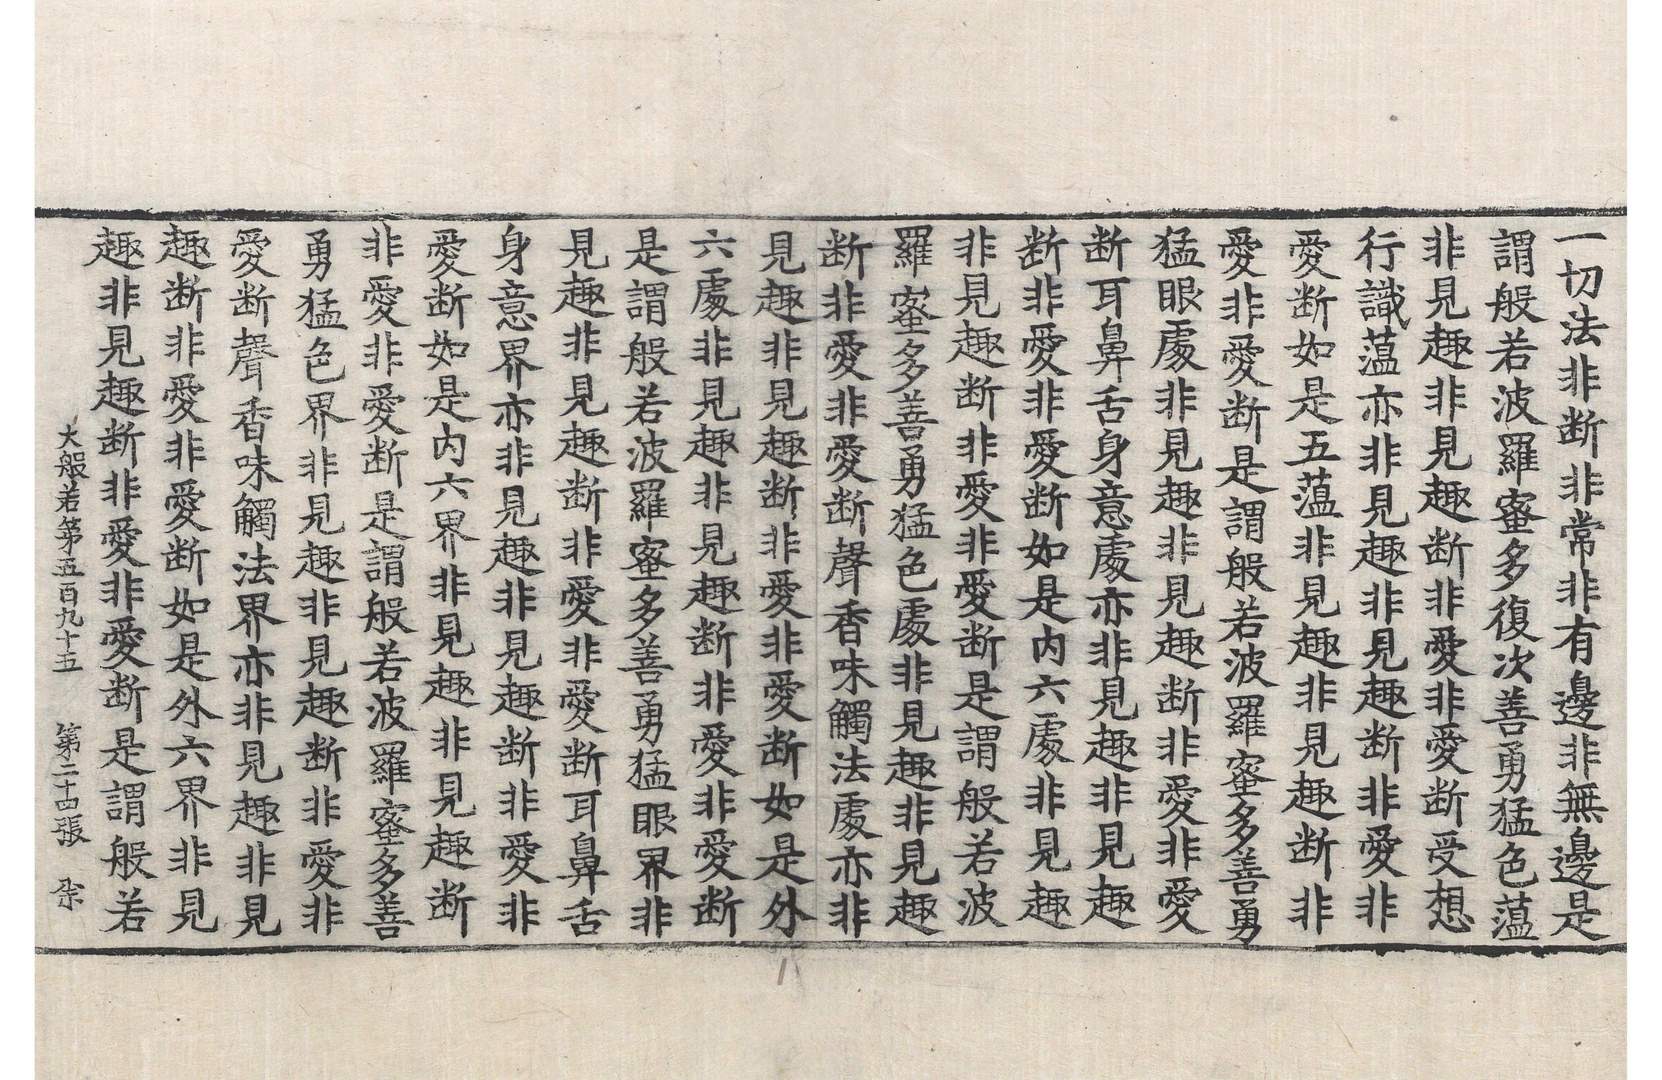 一切法非断非常非有邊非無邊是
謂般若波羅蜜多復次善勇猛色薀
非見趣非見趣断非愛非愛断受想
行識薀亦非見趣非見趣断非愛非
愛断如是五薀非見趣非見趣断非
愛非愛断是謂般若波羅蜜多善勇
猛眼處非見趣非見趣断非愛非愛
断耳鼻舌身意處亦非見趣非見趣
断非愛非愛断如是内六處非見趣
非見趣断非愛非愛断是謂般若波
羅蜜多善勇猛色處非見趣非見趣
断非愛非愛断聲香味觸法處亦非
見趣非見趣断非愛非愛断如是外
六處非見趣非見趣断非愛非愛断
是謂般若波羅蜜多善勇猛眼界非
見趣非見趣断非愛非愛断耳鼻舌
身意界亦非見趣非見趣断非愛非
愛断如是内六界非見趣非見趣断
非愛非愛断是謂般若波羅蜜多善
勇猛色界非見趣非見趣断非愛非
愛断聲香味觸法界亦非見趣非見
趣断非愛非愛断如是外六界非見
趣非見趣断非愛非愛断是謂般若
大般若第五百九十五 第二十四張 柰